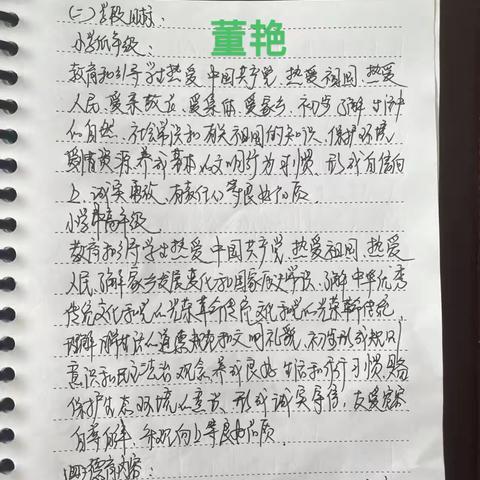 (二)学段目标:
小学低年级:
董艳
教育和引导学生热爱中国共产党、热爱祖国、热爱
人民,爱亲敬长、爱集体、爱家乡,初步了解生活中
的自然、社会常识和有关祖国的知识,保护环境,
爱惜资源,养成基本的文明行为习惯,形成自信向
上、诚实勇敢、有责任心等良好品质。
小学中高年级
教育和引导学生热爱中国共产党、热爱祖国、热爱
人民,了解家乡发展变化和国家历史常识,了解中华优秀
传统文化和党的光荣革命传统文化和党的光荣革命传统,
理解日常生活的道德规范和文明礼貌,初步形成规则
意识和民主法治观念,养成良好生活和行为习惯,具备
保护生态环境的意识,形成诚实守信、友爱宽容、
自尊自律、乐观向上等良好品质。
(四)德育内容: